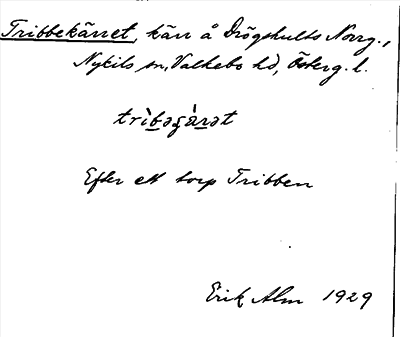 Tribbekärret, kärr å Drögshults Norrg.,
Nykils sn, Valkebo hd, Österg. l.
trìbəɕä̀rət
Efter ett torp Tribben
Erik Alm 1929